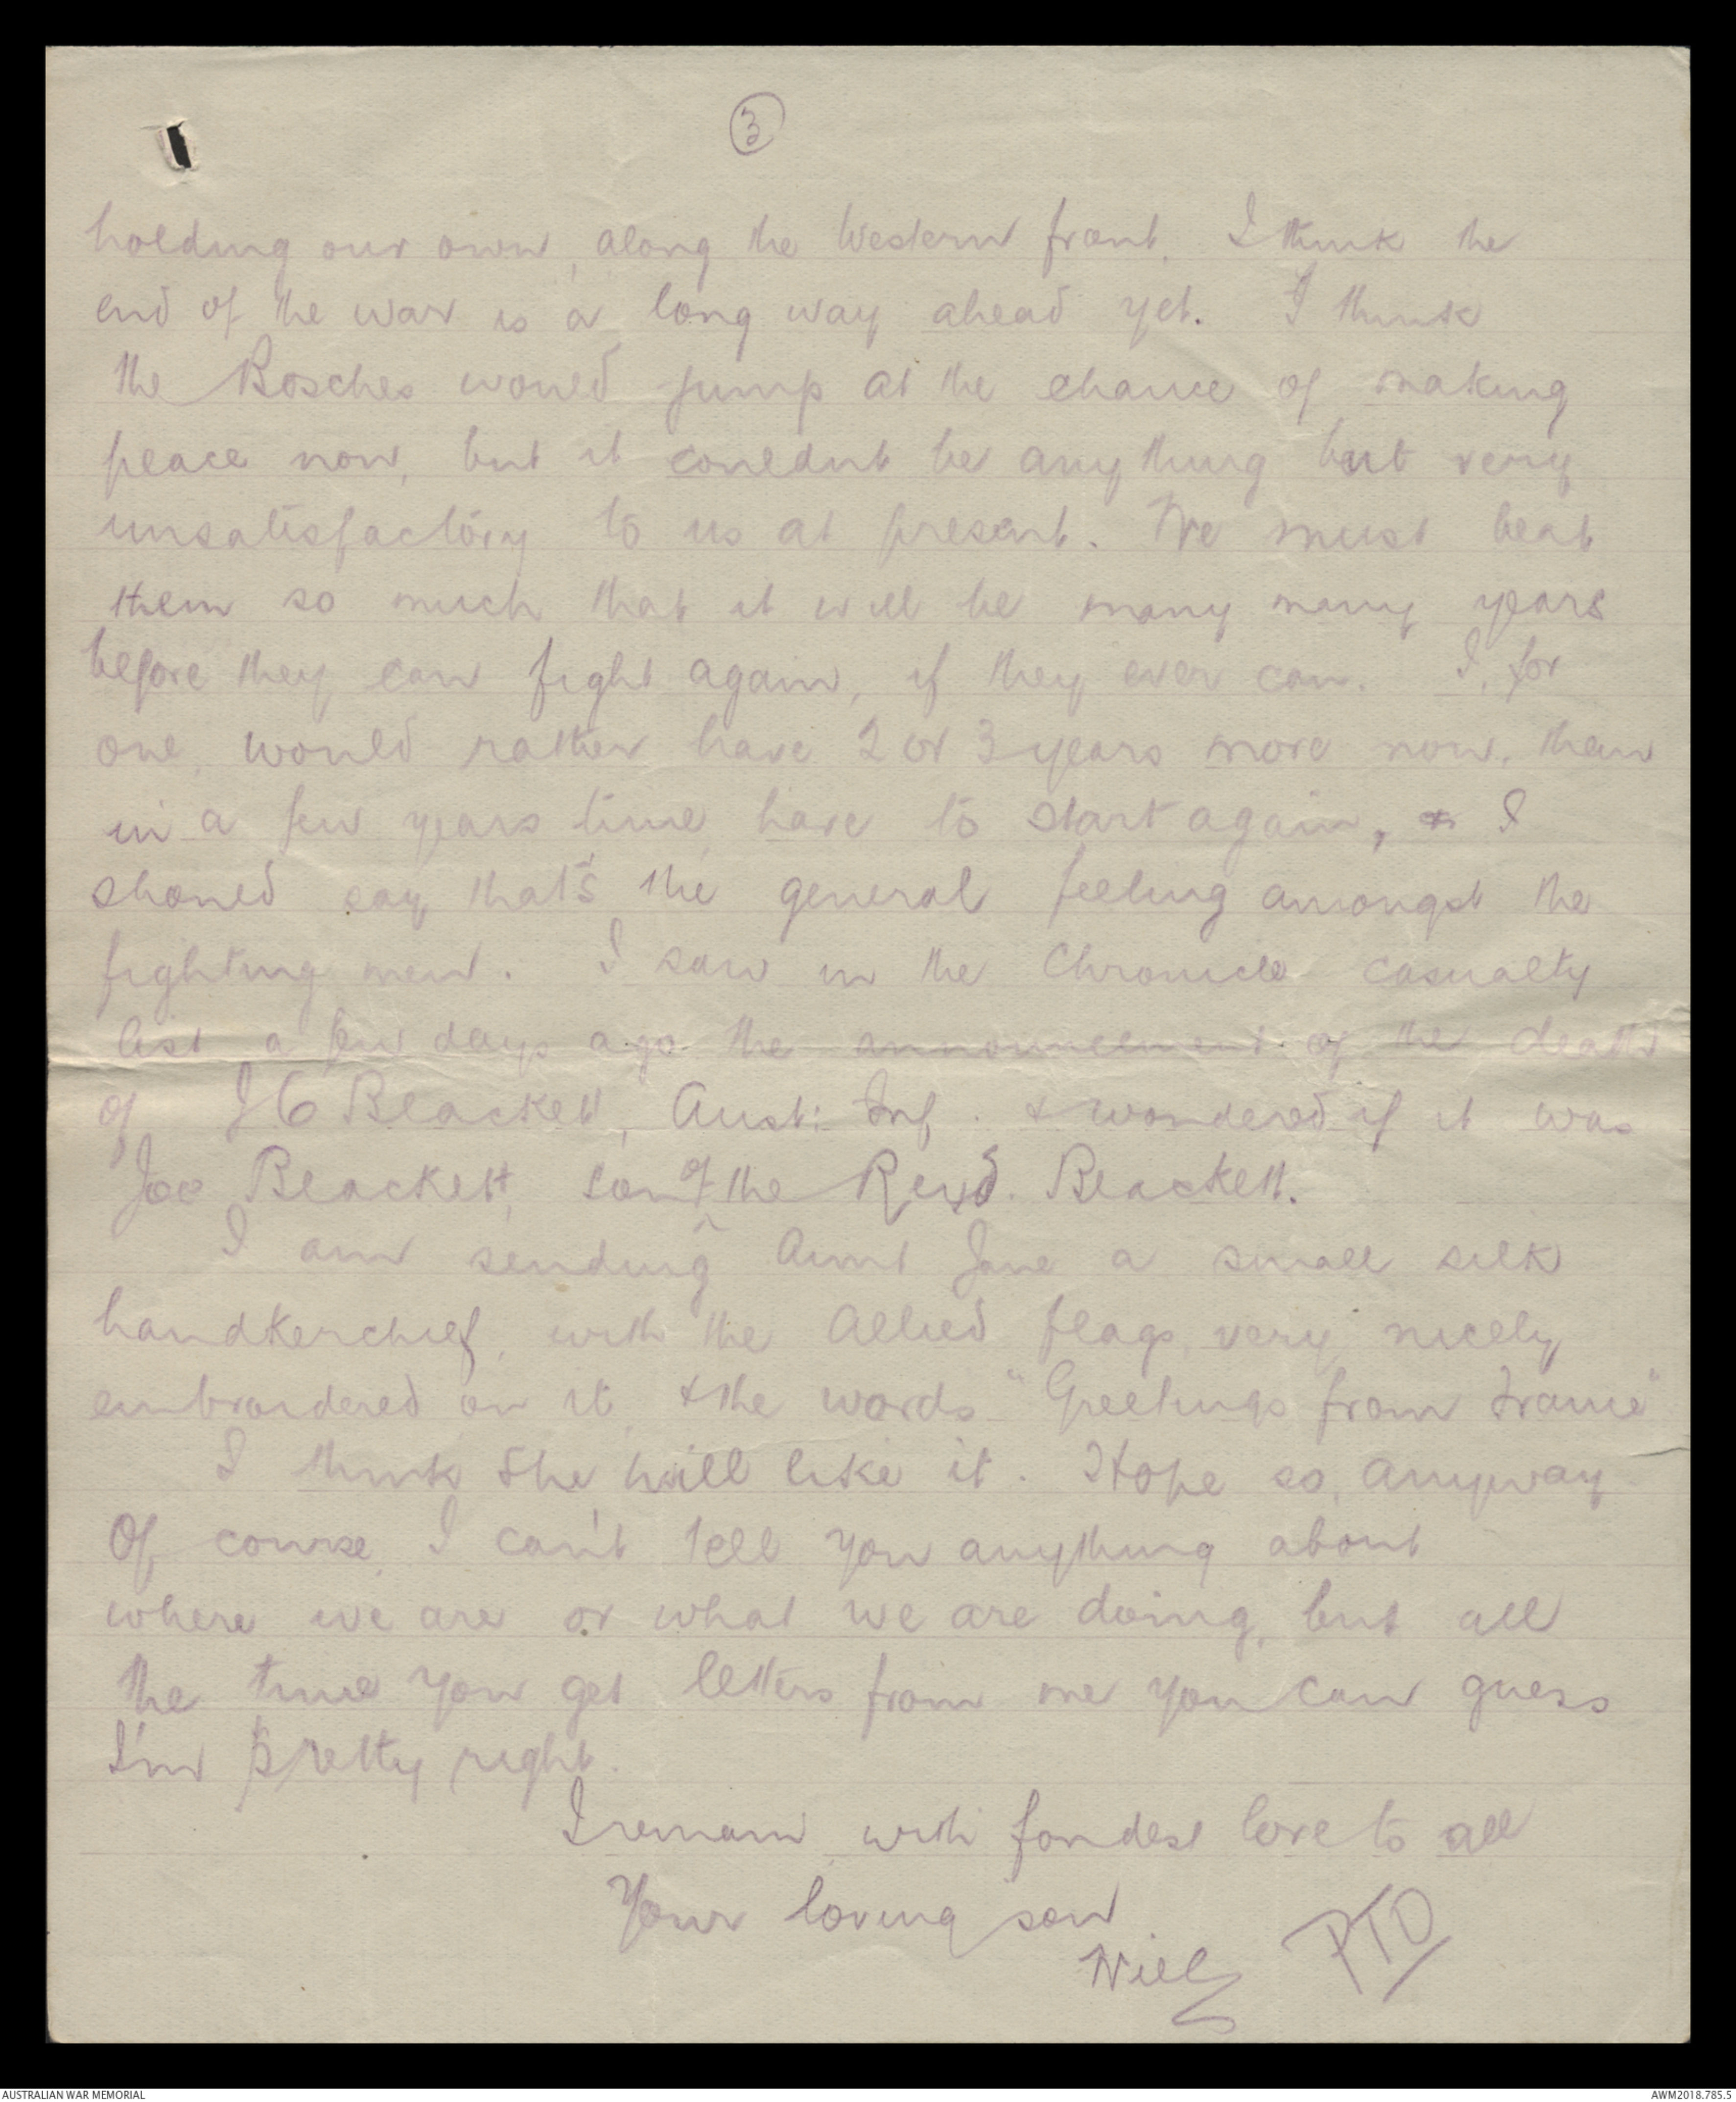 3
holding our own, along the Western front. I think the
end of the war is a long way ahead yet. I think
the Bosches would jump at the chance of making
peace now, but it couldnt be anything but very
unsatisfactory to us at present. We must beat
them so much that it will be many many years
before they can fight again, if they ever can. I, for
one, would rather have 2 or 3 years more now, than
in a few years time, have to start again, & I
should say that's the general feeling amongst the
fighting men. I saw in the Chronicle casualty
list a few days ago the announcement of the death
of J C Blackett, Aust: Inf. & wondered if it was
Joe Blackett, son of the Revd. Blackett.
I am sending Aunt Jane a small silk
handkerchief, with the Allied flags, very nicely
embroidered on it, & the words "Greetings from France"
I think she will like it. Hope so, anyway
Of course, I can't tell you anything about
where we are or what we are doing, but all
the time you get letters from me you can guess
I'm pretty right.
I remain with fondest love to all
Your loving son
Will
PTO
AUSTRALIAN WAR MEMORIAL
AWM2018.785.5